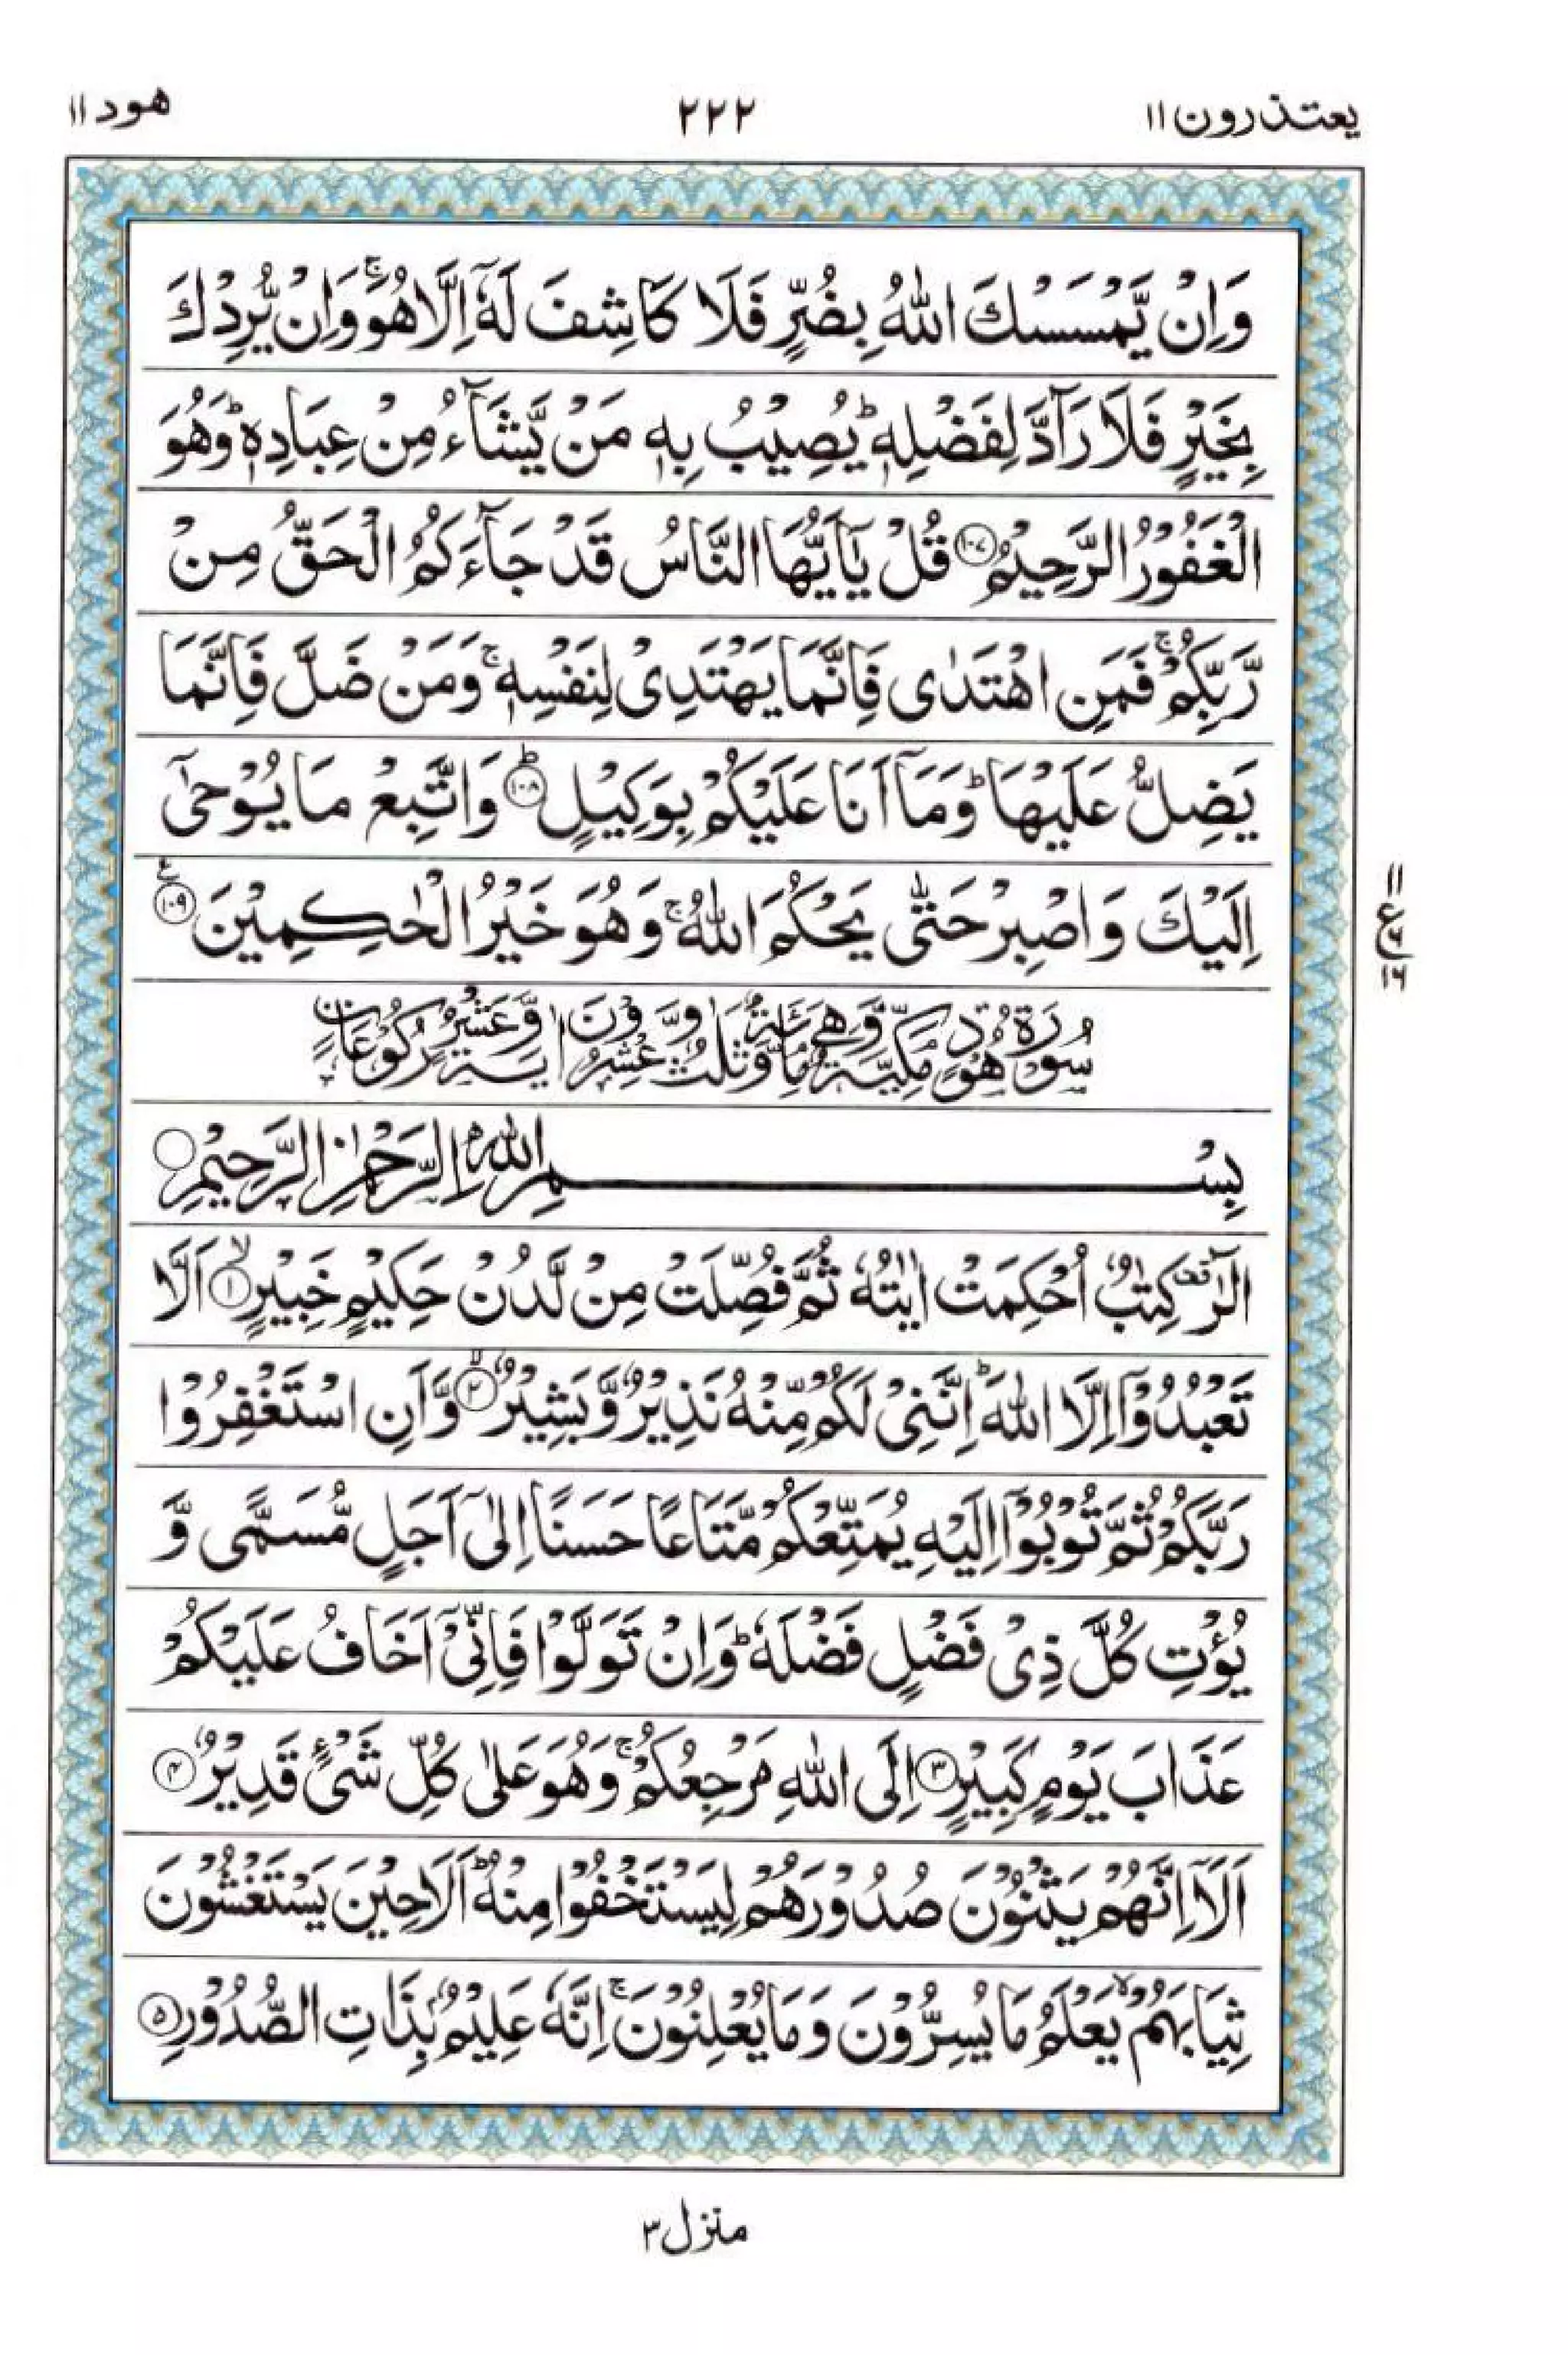 يعتذرون ١١
٢٢٢
هود ١١
وَاِنْ يَّمْسَسْكَ اللّٰهُ بِضُرٍّ فَلَا كَاشِفَ لَهٗۤ اِلَّا هُوَ ۚ وَاِنْ يُّرِدْكَ
بِخَيْرٍ فَلَا رَآدَّ لِفَضْلِهٖ ؕ يُصِيْبُ بِهٖ مَنْ يَّشَآءُ مِنْ عِبَادِهٖ ؕ وَهُوَ
الْغَفُوْرُ الرَّحِيْمُ ﴿١٠٧﴾ قُلْ يٰۤاَيُّهَا النَّاسُ قَدْ جَآءَكُمُ الْحَقُّ مِنْ
رَّبِّكُمْ ۚ فَمَنِ اهْتَدٰى فَاِنَّمَا يَهْتَدِىْ لِنَفْسِهٖ ۚ وَمَنْ ضَلَّ فَاِنَّمَا
يَضِلُّ عَلَيْهَا ؕ وَمَاۤ اَنَا عَلَيْكُمْ بِوَكِيْلٍ ؕ ﴿١٠٨﴾ وَاتَّبِعْ مَا يُوْحٰۤى
اِلَيْكَ وَاصْبِرْ حَتّٰى يَحْكُمَ اللّٰهُ ۚ وَهُوَ خَيْرُ الْحٰكِمِيْنَ ﴿١٠٩﴾
ع
١١
١٦
سُوْرَةُ هُوْدٍ مَكِّيَّةٌ وَّهِىَ مِائَةٌ وَّثَلٰثٌ وَّعِشْرُوْنَ اٰيَةً وَّعَشْرُ رُكُوْعَاتٍ
بِسْمِ اللّٰهِ الرَّحْمٰنِ الرَّحِيْمِ
الٓرٰ ࣞ كِتٰبٌ اُحْكِمَتْ اٰيٰتُهٗ ثُمَّ فُصِّلَتْ مِنْ لَّدُنْ حَكِيْمٍ خَبِيْرٍ ۙ ﴿١﴾ اَلَّا
تَعْبُدُوْۤا اِلَّا اللّٰهَ ؕ اِنَّنِىْ لَكُمْ مِّنْهُ نَذِيْرٌ وَّبَشِيْرٌ ۙ ﴿٢﴾ وَّاَنِ اسْتَغْفِرُوْا
رَبَّكُمْ ثُمَّ تُوْبُوْۤا اِلَيْهِ يُمَتِّعْكُمْ مَّتَاعًا حَسَنًا اِلٰۤى اَجَلٍ مُّسَمًّى وَّ
يُؤْتِ كُلَّ ذِىْ فَضْلٍ فَضْلَهٗ ؕ وَاِنْ تَوَلَّوْا فَاِنِّىْۤ اَخَافُ عَلَيْكُمْ
عَذَابَ يَوْمٍ كَبِيْرٍ ﴿٣﴾ اِلَى اللّٰهِ مَرْجِعُكُمْ ۚ وَهُوَ عَلٰى كُلِّ شَىْءٍ قَدِيْرٌ ﴿٤﴾
اَلَاۤ اِنَّهُمْ يَثْنُوْنَ صُدُوْرَهُمْ لِيَسْتَخْفُوْا مِنْهُ ؕ اَلَا حِيْنَ يَسْتَغْشُوْنَ
ثِيَابَهُمْ ۙ يَعْلَمُ مَا يُسِرُّوْنَ وَمَا يُعْلِنُوْنَ ۚ اِنَّهٗ عَلِيْمٌۢ بِذَاتِ الصُّدُوْرِ ﴿٥﴾
منزل ٣